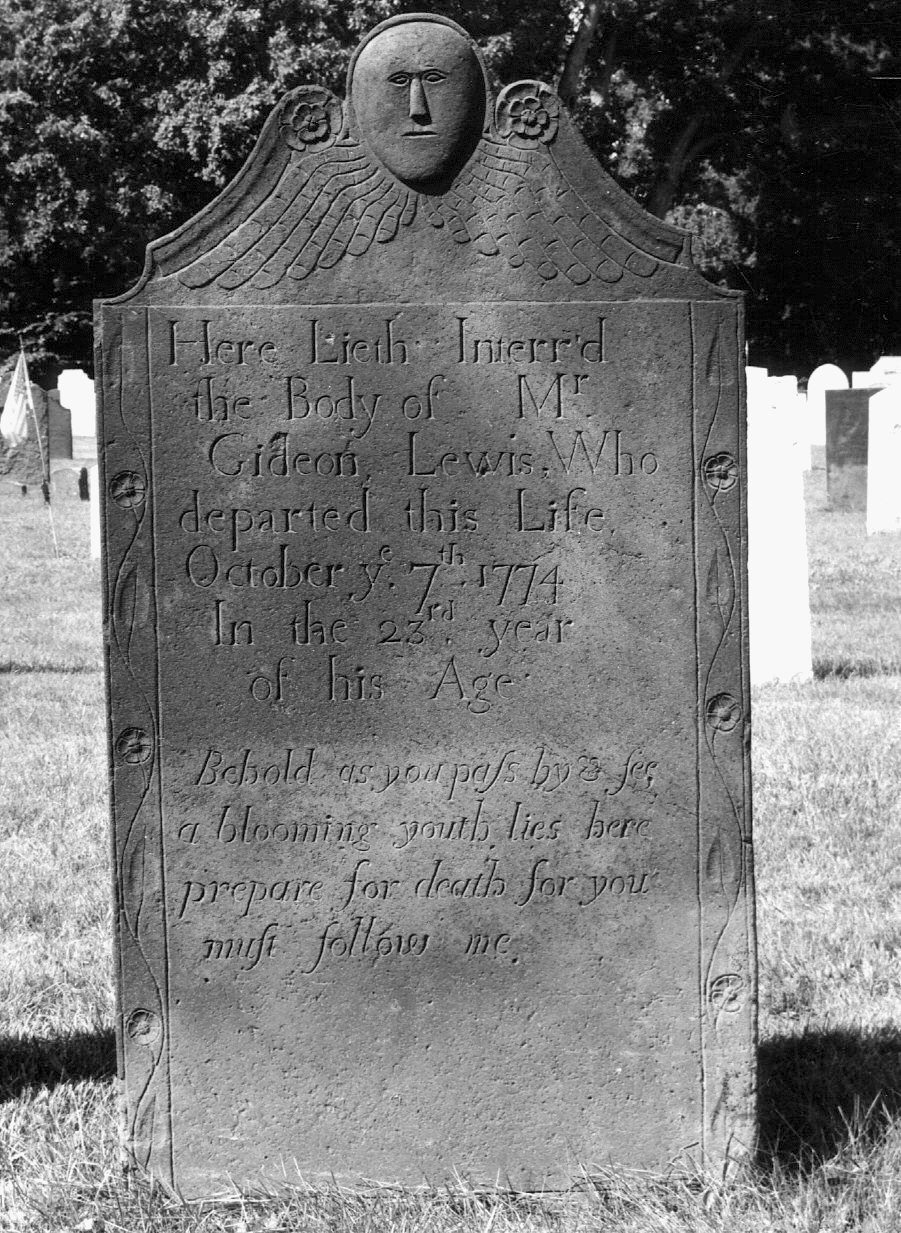 Here Lieth Interr'd
the Body of Mr.
Gideon Lewis, Who
departed this Life
October ye. 7th. 1774
In the 23rd. year
of his Age
Behold as you paſs by & ſee,
a blooming youth lies here
prepare for death for you
muſt follow me.